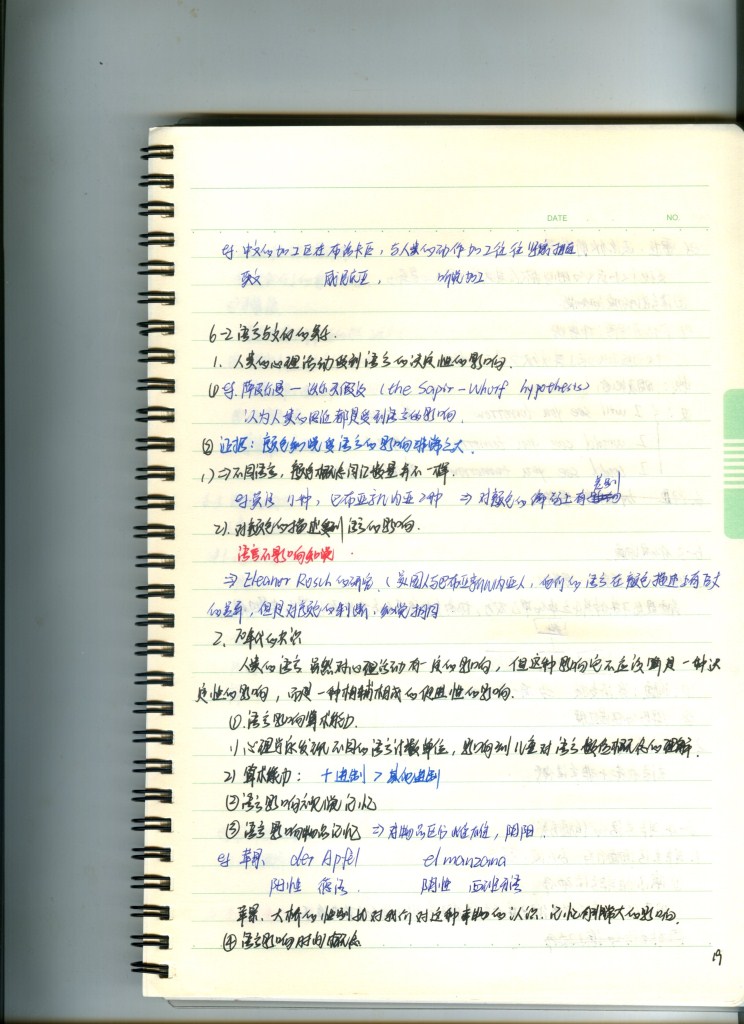 DATE . . NO.
eg. 中文的加工区在布洛卡区，与人类的动作加工往往紧密相连
英文 威尼克区， 听觉加工
6-2 语言与文化的关系
1. 人类的心理活动受到语言的决定性的影响．
① eg. 萨丕尔 — 沃尔夫假设 (the Sapir-Whorf hypothesis)
认为人类的思维都是受到语言的影响．
② 证据：颜色知觉受语言的影响非常之大．
1) ⇒ 不同语言，颜色概念词汇数量并不一样．
eg 英语 11种，巴布亚新几内亚 2种 ⇒ 对颜色的 上有差别
2). 对颜色的描述受到语言的影响．
语言不影响知觉．
⇒ Eleanor Rosch 的研究．(美国人与巴布亚新几内亚人，他们的语言在颜色描述上有巨大
的差异，但是对颜色的判断、知觉相同
2. 的共识
人类的语言虽然对心理活动有一定的影响，但这种影响它不应该算是一种决
定性的影响，而是一种相辅相成的促进性的影响．
①. 语言影响算术能力．
1) 心理学家发现不同的语言计数单位，影响到儿童对语言数字概念的理解．
2) 算术能力： 十进制 > 其他进制
② 语言影响视觉记忆
③ 语言影响物品记忆 ⇒ 对物品区分雌雄，阴阳．
eg 苹果 der Apfel el manzana
阳性 德语． 阴性 西班牙语
苹果、大桥的性别 对我们对这种事物的认识、记忆有非常大的影响．
④ 语言影响时间概念
19